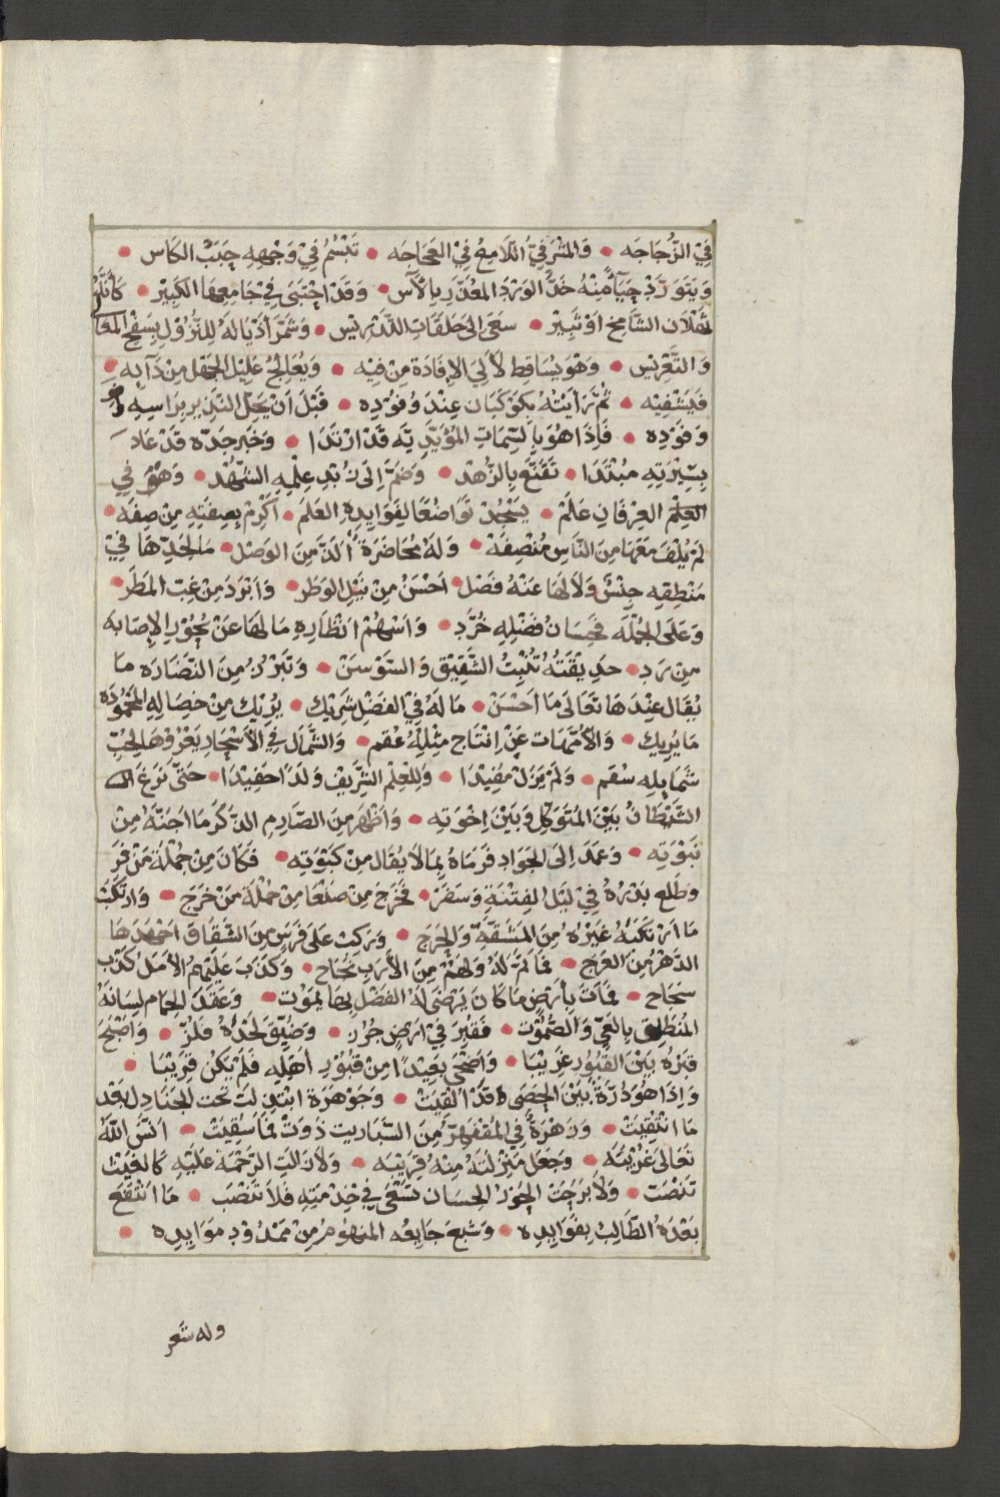 فِيْ الزُّجَاجَه • وَالمَشْرَفِيُّ اللَّامِعُ فِيْ العَجَاجَه • تَبْسُمُ فِيْ وَجْهِهِ حَبَبُ الكَاس •
وَيَتَوَرَّدُ حَيَآءً مِنْهُ خَدُّ الوَرْدِ المُعَذَّرِ بِالآس • وَقَدْ اِجْتَبَى فِيْ جَامِعِهَا الكَبِيْر • كَأَنَّهُ
ثَهْلَان الشَّامِخ اَوْ ثَبِيْر • سَعَى اِلى حَلَقَاتِ التَّدْرِيس • وَشَمَّرَ أَذْيَالَهُ لِلنُّزُوْلِ بِسَفْحِ
وَالتَّعْرِيْس • وَهْوَ يُسَاقِط لَآلِيَ الاِفَادَة مِنْ فِيْه • وَيُعَالِجُ عَلِيْلَ الجَهْل مِنْ دَآيِه
فَيَشْفِيْه • ثُمَّ رَأيْتُهُ بِكَوْكَبَان عِنْدَ وُفُوْدِه • قَبْلَ اَنْ يَحِلَّ النَّذِيرُ بِرَاسِهِ
وَفَوْدِه • فَاِذَا هُوَ بِالسِّمَاتِ المُؤَيَّدِيَّه قَدْ اِرْتَدَا • وَخَبَر جَدّه قَدْ عَادَ
بِسِيْرَتِهِ مُبْتَدَا • تَقَنَّعَ بِالزُّهْد • وَضَمَّ اِلَى زُبْدِ عِلْمِهِ الشُّهْد • وَهْوَ فِي
العِلْمِ العِرْفَانِ عَلَمْ • يَسْجُدُ تَوَاضُعًا لِفَوَايِدِهِ القَلَمْ • أَكْرِمْ بِصِفَتِهِ مِنْ صِفَه •
لَمْ يُلْفَ مَعَهَا مِنَ النَّاسِ مُنْصِفَة • وَلَهُ مُحَاضَرَةٌ أَلَذَّ مِنَ الوَصْل • مَا لِحَدِّهَا فِيْ
مَنْطِقِهِ جِنْسٌ وَلَا لَهَا عَنْهُ فَصْل • اَحْسَنُ مِنْ نَيْلِ الوَطَر • وَاَبْرَدَ مِنْ غِبّ المَطَر •
وَعَلَى الجُمْلَه فَحِسَانُ فَضْلِهِ خُرَّدِ • وَاَسْهُمُ اَنْظَارِهِ مَا لَهَا عَنْ نُحُوْرِ الاِصَابَه
مِنْ رَدِ • حَدِيْقَتُهُ تُنْبِتُ الشَّقِيْق وَالسَّوْسَنْ • وَتَبْرُزُ مِنَ النَّضَارَه مَا
يُقَال عِنْدَهَا تَعَالَى مَا اَحْسَنْ • مَا لَهُ فِيْ الفَضْلِ شَرِيْك • يُرِيْكَ مِنْ خِصَالِهِ المَحْمُوْدَة
مَا يُرِيك • وَالاُمَّهَات عَنْ اِنْتَاج مِثْلِهِ عُقم • وَالشَّمَال فِي الأَسْحَار يَعْرُوْهَا لِحُبِّ
شَمَايِلِهِ سُقم • وَلَمْ يَزَلْ مُفِيْدَا • وَلِلْعِلْمِ الشَّرِيْفِ وَلَدًا حَفِيْدَا • حَتَّى نَزَغ
الشَّيْطَانُ بَيْنَ المُتَوَكِّلِ وَبَيْنَ اِخْوَتِه • وَاَظْهَرَ مِنَ الصَّارِمِ الذَّكَرْ مَا اَجَنَّهُ مِنْ
نَبْوَتِه • وَعَمَدَ اِلَى الجَوَاد فَرَمَاهُ بِمَا لَا يُقَال مِنْ كَبْوَتِه • فَكَانَ مِنْ جُمْلَةِ مَنْ فَرَّ
وَطَلع بَدْرُهُ فِيْ لَيْلِ الفِتْنَةِ وَسَفَرْ • فَخَرَجَ مِنْ صَنْعَا مِنْ جُمْلَة مَنْ خَرَجَ • وَارْتَكَبَ
مَا اَرْتَكَبَهُ غَيْرُهُ مِنَ المَشَقَّةِ وَالحَرَج • وَرَكبَ عَلَى فَرَسٍ مِنَ الشِّقَاقَ اَجْهَدَهَا
الدَّهْرُ مِنَ العَرَج • فَمَا تَمَّ لَهُ وَلَهُمْ مِنَ الأَرَبِ نَجَاح • وَكَذَبَ عَلَيْهِمُ الأَمَلُ كَذِبَ
سَجَاح • فَمَاتَ بِأَرْضٍ مَا كَانَ يَرْضَى لَهُ الفَضْل بِهَا يَمُوْت • وَعَقَدَ الحِمَام لِسَانَهُ
المُنطَلِق بِالعِيِّ وَالصُّمُوْت • فَقُبِرَ فِيْ اَرْضِ جُرُز • وَضُيِّقَ لَحْدُهُ فَلُزّ • وَاَصْبَحَ
قَبْرُهُ بَيْنَ القُبُوْرِ غَرِيْبَا • وَاَضْحَى بَعِيْدًا مِنْ قُبُوْرِ أَهْلِهِ فَلَمْ يَكُنْ قَرِيْبَا •
وَاِذَا هُوَ دُرَّةٌ بَيْنَ الحَصَى قَدْ اُلْقِيَتْ • وَجَوْهَرَة ابْتُذِلَتْ تَحْت الجَنَادِل بَعْدَ
مَا انْتُقِيَتْ • وَزَهْرَةٌ فِي المُقْفَهِرّ مِنَ السَّبَاريت ذَوَتْ فَمَا سُقِيَتْ • اَنَّسَ اللّٰهُ
تَعَالَى غُرْبَتَه • وَجَعَلَ مَنْزِلَتَهُ مِنْهُ قَرِيْبَه • وَلَازَالَتِ الرَّحْمَة عَلَيْهِ كَالغَيْث
تَنْصَب • وَلَا بَرِحَتْ الحُوْرُ الحِسَان تَسْعَى فِيْ خِدْمَتِهِ فَلَا تَنْصَب • مَا انْتَفَعَ
بَعْدَهُ الطَّالِبُ بِفَوَايِدِه • وَشَبعَ جَايِعُه المَنهُوْمُ مِنْ مَمْدُوْدِ مَوَايِدِه •
وله شعر